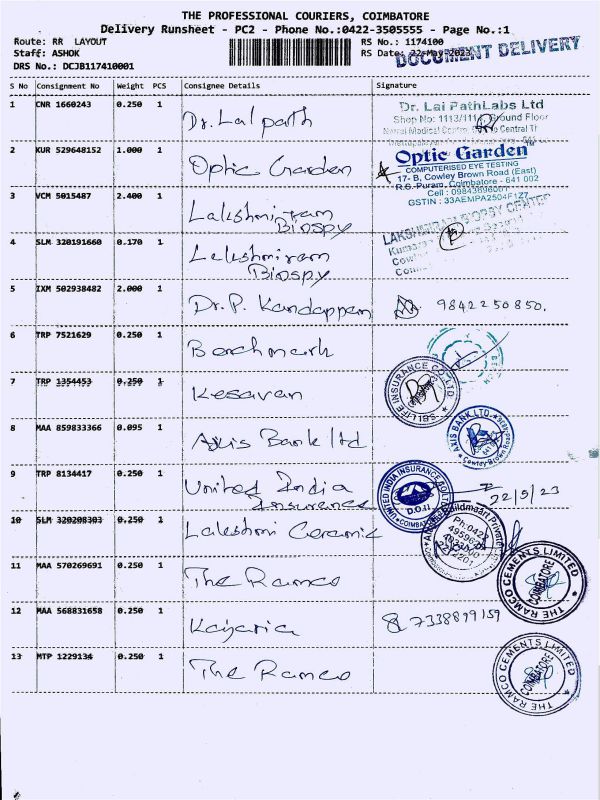 THE PROFESSIONAL COURIERS, COIMBATORE
Delivery Runsheet - PC2 - Phone No.:0422-3505555 - Page No.:1
Route: RR LAYOUT
RS No.: 1174100
Staff: ASHOK
RS Date: 22-May-2023
DOCUMENT DELIVERY
DRS No.: DCJB117410001
S No Consignment No Weight PCS Consignee Details Signature
1 CNR 1660243 0.250 1 Dr. Lal path
Dr. Lal PathLabs Ltd
Shop No: 1113/111 Ground Floor
Central
2 KUR 529648152 1.000 1 Optic Garden
Optic Garden
COMPUTERISED EYE TESTING
17- B, Cowley Brown Road (East)
R.S. Puram, Coimbatore - 641 002
Cell : 09843696001
GSTIN : 33AEMPA2504F1Z7
3 VCM 5015487 2.400 1 Lakshmiram
Biospy
LAKSHMIRAM BIOPSY CENTRE
4 SLM 320191660 0.170 1 Lakshmiram
Biospy
5 IXM 502938482 2.000 1 Dr. P. Kandappam 9842250850.
6 TRP 7521629 0.250 1 Benchmark
7 TRP 1354453 0.250 1 Kesavan
LIFE INSURANCE CO. LTD
8 MAA 859833366 0.095 1 Axis Bank ltd
AXIS BANK LTD.
Cowley Brown Road
9 TRP 8134417 0.250 1 United India
Insurance
UNITED INDIA INSURANCE CO. LTD
D.O.II
22/5/23
10 SLM 320208303 0.250 1 Lakshmi Ceramic
Buildmaart Private
Ph:0422
11 MAA 570269691 0.250 1 The Ramco
THE RAMCO CEMENTS LIMITED
COIMBATORE
12 MAA 568831658 0.250 1 Kajaria 7338899159
13 MTP 1229134 0.250 1 The Ramco
THE RAMCO CEMENTS LIMITED
COIMBATORE